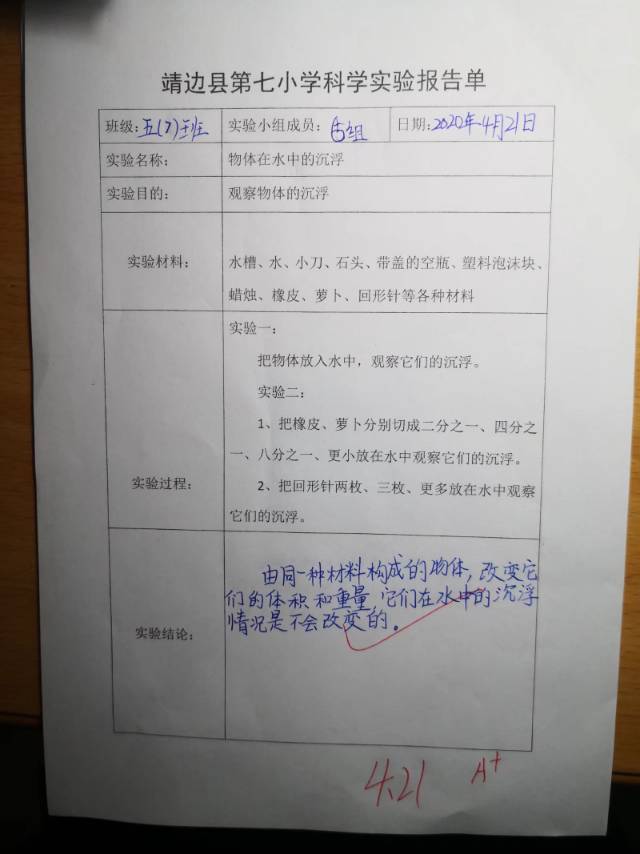 靖边县第七小学科学实验报告单
班级:五(7)班 实验小组成员: 日期:2020年4月21日
实验名称: 物体在水中的沉浮
实验目的: 观察物体的沉浮
实验材料: 水槽、水、小刀、石头、带盖的空瓶、塑料泡沫块、
蜡烛、橡皮、萝卜、回形针等各种材料
实验一:
把物体放入水中，观察它们的沉浮。
实验二:
1、把橡皮、萝卜分别切成二分之一、四分之
一、八分之一、更小放在水中观察它们的沉浮。
实验过程:
2、把回形针两枚、三枚、更多放在水中观察
它们的沉浮。
由同一种材料构成的物体，改变它
们的体积和重量，它们在水中的沉浮
情况是不会改变的。
实验结论:
4.21 A+